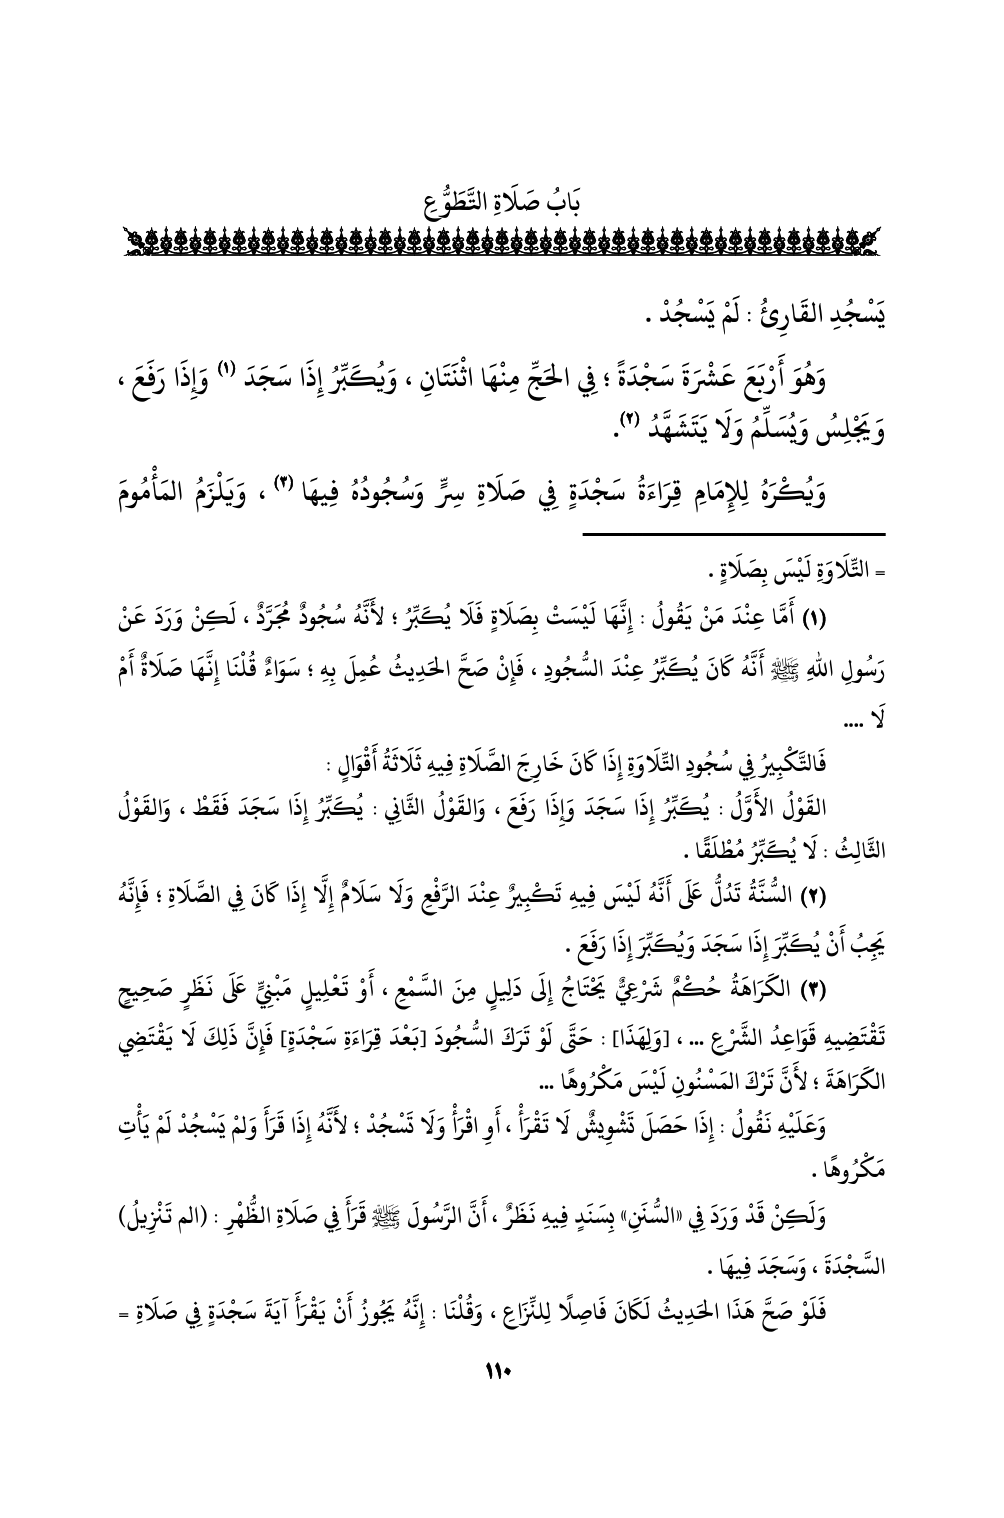 بَابُ صَلَاةِ التَّطَوُّعِ
يَسْجُدِ القَارِئُ : لَمْ يَسْجُدْ .
وَهُوَ أَرْبَعَ عَشْرَةَ سَجْدَةً ؛ فِي الحَجِّ مِنْهَا اثْنَتَانِ ، وَيُكَبِّرُ إِذَا سَجَدَ (١) وَإِذَا رَفَعَ ،
وَيَجْلِسُ وَيُسَلِّمُ وَلَا يَتَشَهَّدُ (٢).
وَيُكْرَهُ لِلإِمَامِ قِرَاءَةُ سَجْدَةٍ فِي صَلَاةِ سِرٍّ وَسُجُودُهُ فِيهَا (٣) ، وَيَلْزَمُ المَأْمُومَ
= التِّلَاوَةِ لَيْسَ بِصَلَاةٍ .
(١) أَمَّا عِنْدَ مَنْ يَقُولُ : إِنَّهَا لَيْسَتْ بِصَلَاةٍ فَلَا يُكَبِّرُ ؛ لأَنَّهُ سُجُودٌ مُجَرَّدٌ ، لَكِنْ وَرَدَ عَنْ
رَسُولِ اللهِ ﷺ أَنَّهُ كَانَ يُكَبِّرُ عِنْدَ السُّجُودِ ، فَإِنْ صَحَّ الحَدِيثُ عُمِلَ بِهِ ؛ سَوَاءٌ قُلْنَا إِنَّهَا صَلَاةٌ أَمْ
لَا ....
فَالتَّكْبِيرُ فِي سُجُودِ التِّلَاوَةِ إِذَا كَانَ خَارِجَ الصَّلَاةِ فِيهِ ثَلَاثَةُ أَقْوَالٍ :
القَوْلُ الأَوَّلُ : يُكَبِّرُ إِذَا سَجَدَ وَإِذَا رَفَعَ ، وَالقَوْلُ الثَّانِي : يُكَبِّرُ إِذَا سَجَدَ فَقَطْ ، وَالقَوْلُ
الثَّالِثُ : لَا يُكَبِّرُ مُطْلَقًا .
(٢) السُّنَّةُ تَدُلُّ عَلَى أَنَّهُ لَيْسَ فِيهِ تَكْبِيرٌ عِنْدَ الرَّفْعِ وَلَا سَلَامٌ إِلَّا إِذَا كَانَ فِي الصَّلَاةِ ؛ فَإِنَّهُ
يَجِبُ أَنْ يُكَبِّرَ إِذَا سَجَدَ وَيُكَبِّرَ إِذَا رَفَعَ .
(٣) الكَرَاهَةُ حُكْمٌ شَرْعِيٌّ يَحْتَاجُ إِلَى دَلِيلٍ مِنَ السَّمْعِ ، أَوْ تَعْلِيلٍ مَبْنِيٍّ عَلَى نَظَرٍ صَحِيحٍ
تَقْتَضِيهِ قَوَاعِدُ الشَّرْعِ ... ، [وَلِهَذَا] : حَتَّى لَوْ تَرَكَ السُّجُودَ [بَعْدَ قِرَاءَةِ سَجْدَةٍ] فَإِنَّ ذَلِكَ لَا يَقْتَضِي
الكَرَاهَةَ ؛ لأَنَّ تَرْكَ المَسْنُونِ لَيْسَ مَكْرُوهًا ...
وَعَلَيْهِ نَقُولُ : إِذَا حَصَلَ تَشْوِيشٌ لَا تَقْرَأْ ، أَوِ اقْرَأْ وَلَا تَسْجُدْ ؛ لأَنَّهُ إِذَا قَرَأَ وَلمْ يَسْجُدْ لَمْ يَأْتِ
مَكْرُوهًا .
وَلَكِنْ قَدْ وَرَدَ فِي «السُّنَنِ» بِسَنَدٍ فِيهِ نَظَرٌ ، أَنَّ الرَّسُولَ ﷺ قَرَأَ فِي صَلَاةِ الظُّهْرِ : (الم تَنْزِيلُ)
السَّجْدَةَ ، وَسَجَدَ فِيهَا .
فَلَوْ صَحَّ هَذَا الحَدِيثُ لَكَانَ فَاصِلًا لِلنِّزَاعِ ، وَقُلْنَا : إِنَّهُ يَجُوزُ أَنْ يَقْرَأَ آيَةَ سَجْدَةٍ فِي صَلَاةِ =
١١٠